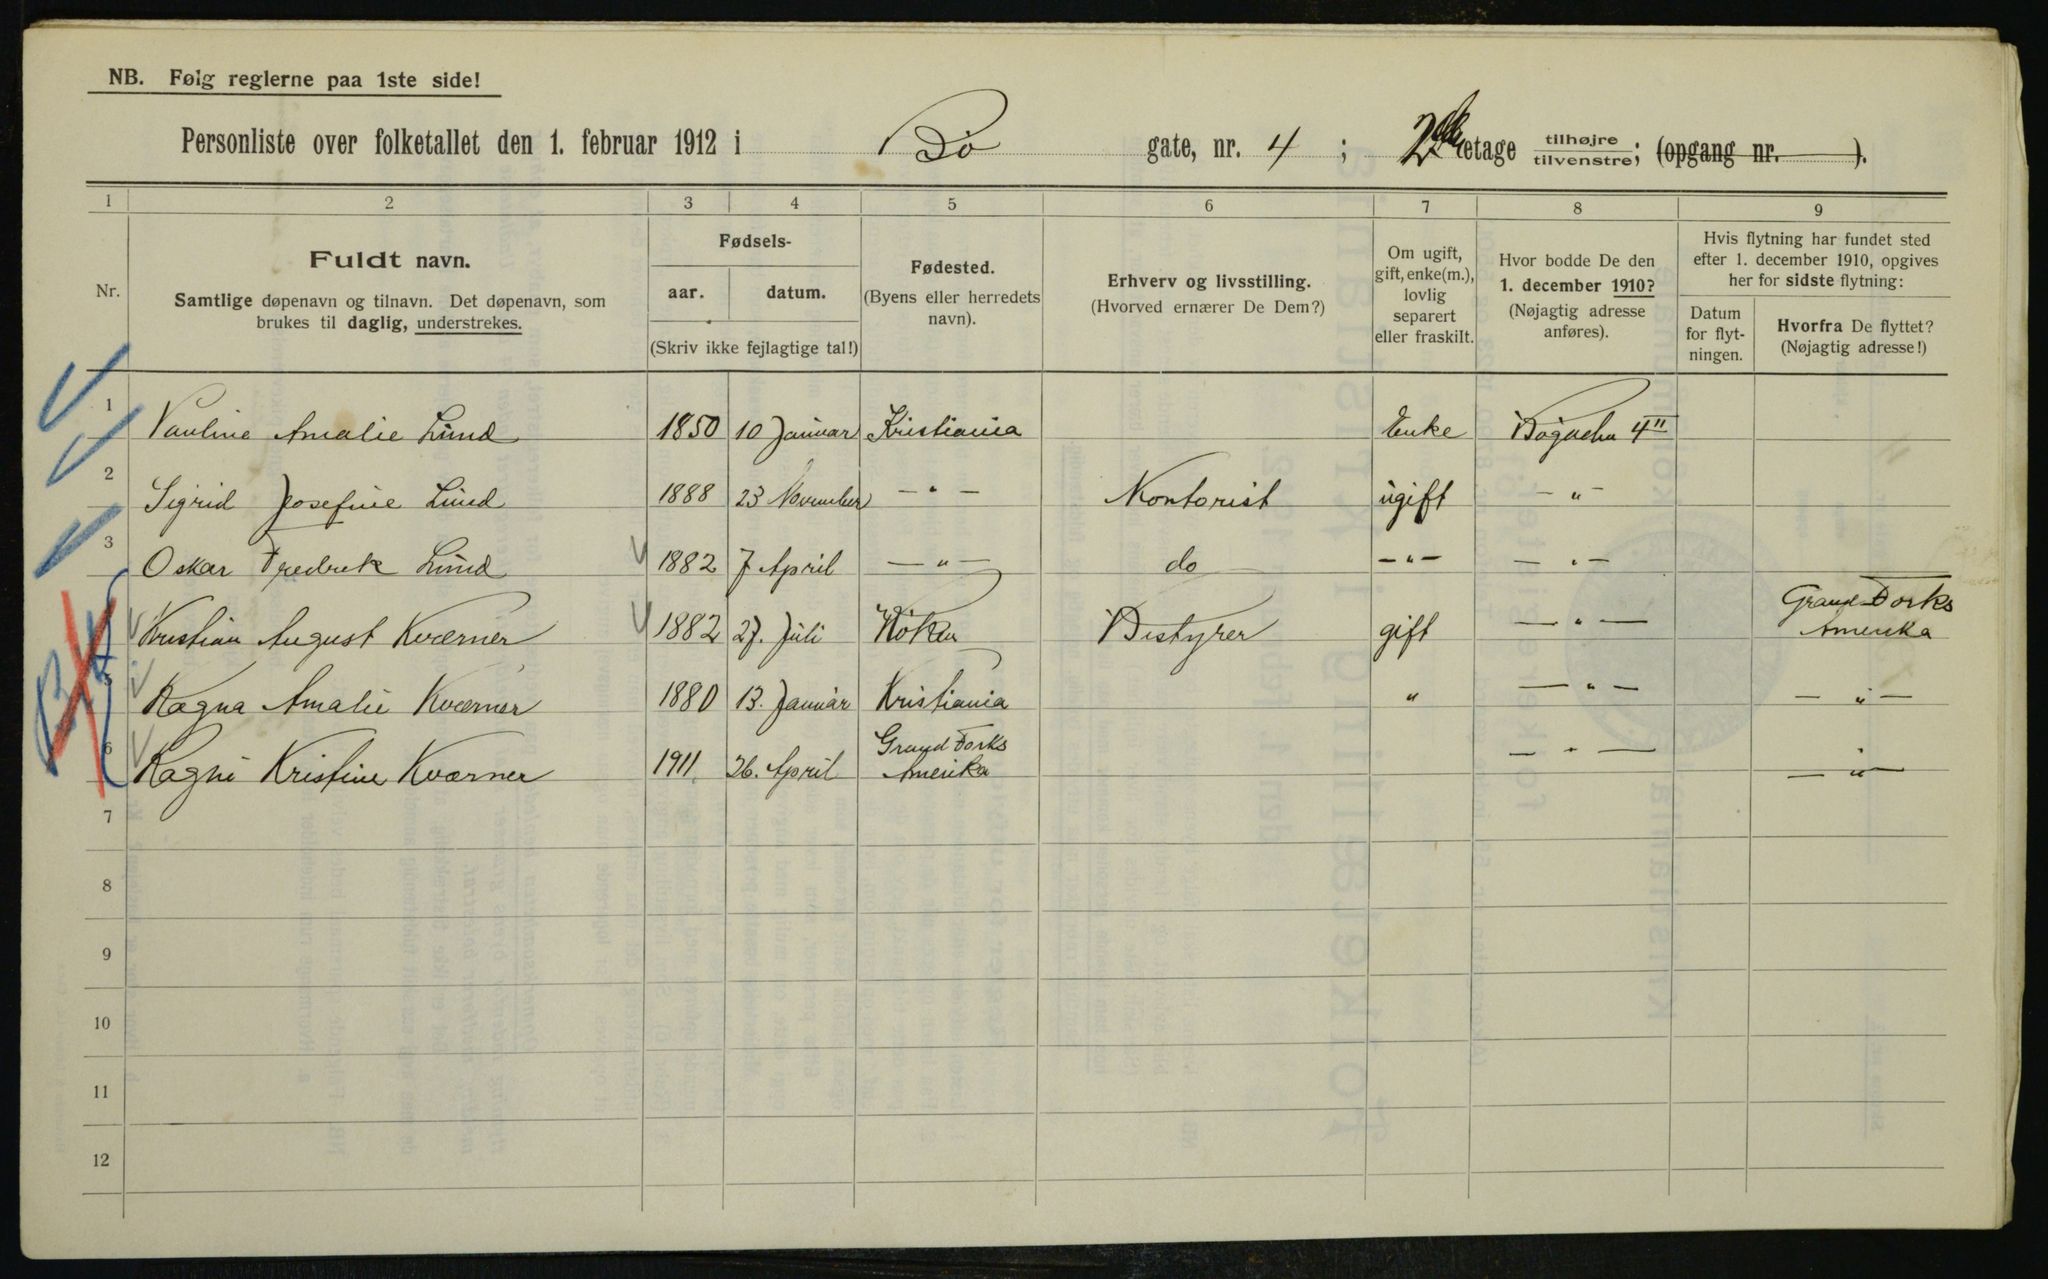 NB. Følg reglerne paa 1ste side!
Personliste over folketallet den 1. februar 1912 i Bø gate, nr. 4 ; 2 etage tilhøjre tilvenstre; (opgang nr. ).
1 2 3 4 5 6 7 8 9
Nr.
Fuldt navn.
Samtlige døpenavn og tilnavn. Det døpenavn, som
brukes til daglig, understrekes.
Fødsels-
aar. datum.
(Skriv ikke fejlagtige tal!)
Fødested.
(Byens eller herredets
navn).
Erhverv og livsstilling.
(Hvorved ernærer De Dem?)
Om ugift,
gift, enke(m.),
lovlig
separert
eller fraskilt.
Hvor bodde De den
1. december 1910?
(Nøjagtig adresse
anføres).
Hvis flytning har fundet sted
efter 1. december 1910, opgives
her for sidste flytning:
Datum
for flyt-
ningen.
Hvorfra De flyttet?
(Nøjagtig adresse!)
1 Pauline Amalie Lund 1850 10 Januar Kristiania Enke Bøgaden 4 II
2 Sigrid Josefine Lund 1888 23 November — " — Kontorist ugift — " —
3 Oskar Fredrik Lund 1882 7 April — " — do — " — — " —
Kristian August Kværner 1882 27. Juli Røken Bestyrer gift — " — Grand Forks
Amerika
5 Ragna Amalie Kværner 1880 13. Januar Kristiania " — " — — " —
6 Ragni Kristine Kværner 1911 26. April Grand Forks
Amerika — " — — " —
7
8
9
10
11
12